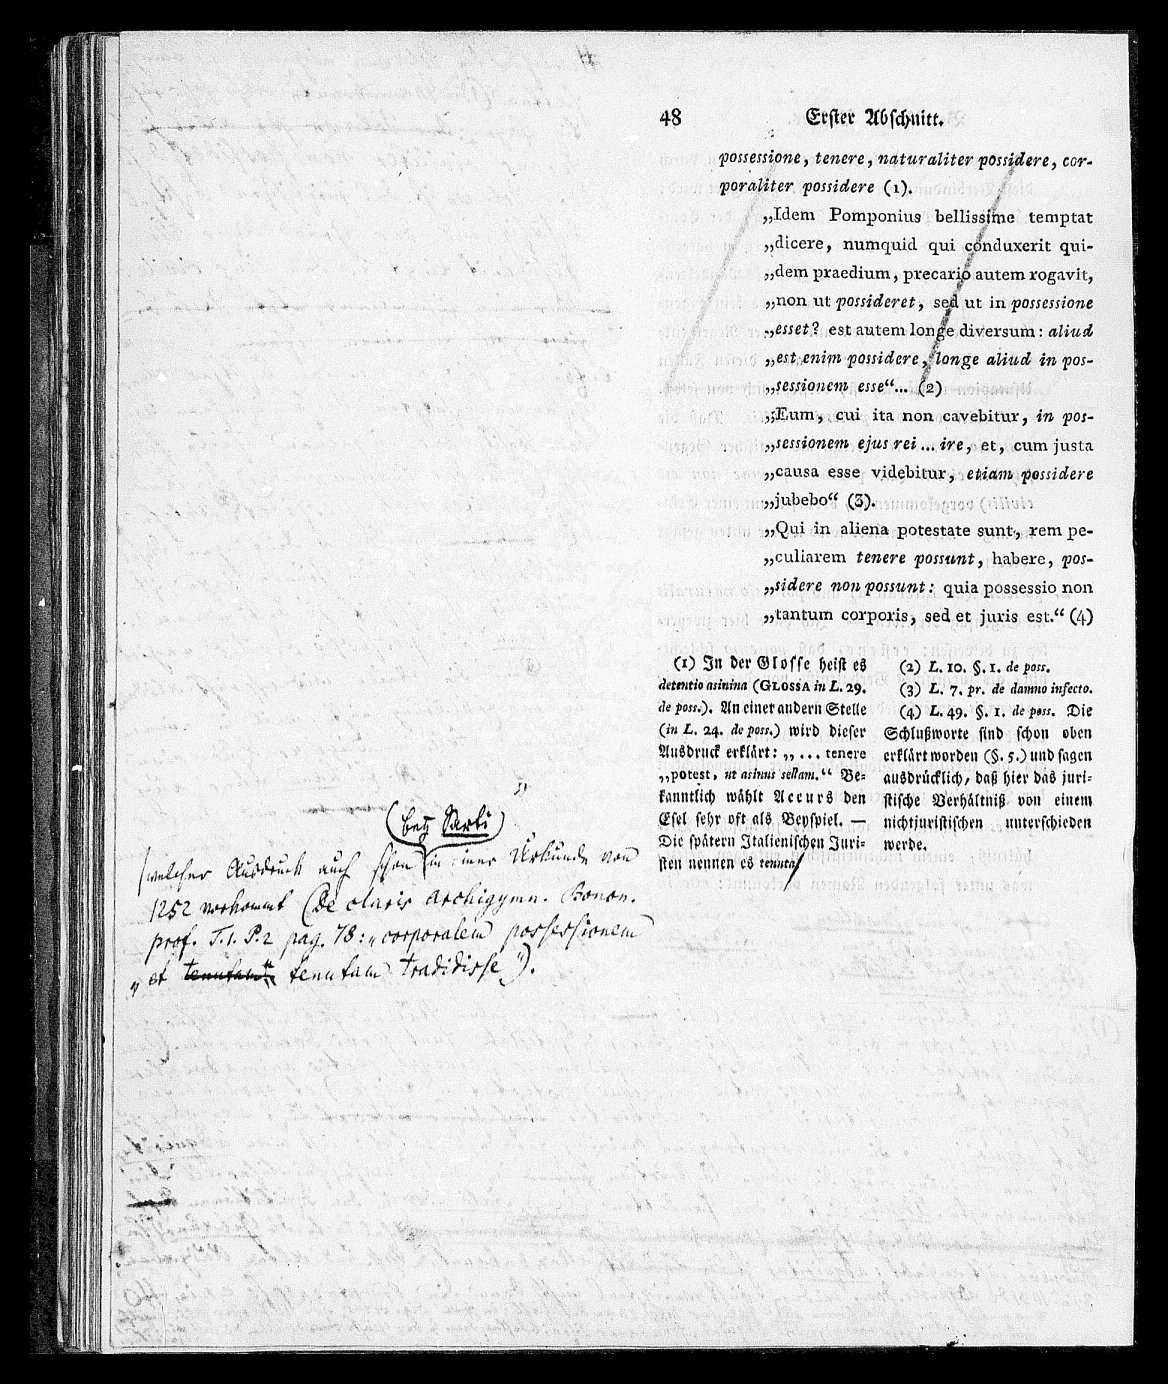 48 Erster Abschnitt.
possessione, tenere, naturaliter possidere, cor-
poraliter possidere (1).
„Idem Pomponius bellissime temptat
„dicere, numquid qui conduxerit qui-
„dem praedium, precario autem rogavit,
„non ut possideret, sed ut in possessione
„esset? est autem longe diversum: aliud
„est enim possidere, longe aliud in pos-
„sessionem esse“... (2)
„Eum, cui ita non cavebitur, in pos-
„sessionem ejus rei ... ire, et, cum justa
„causa esse videbitur, etiam possidere
„jubebo“ (3).
„Qui in aliena potestate sunt, rem pe-
„culiarem tenere possunt, habere, pos-
„sidere non possunt: quia possessio non
„tantum corporis, sed et juris est.“ (4)
(1) In der Glosse heißt es
detentio asinina (GLOSSA in L. 29.
de poss.). An einer andern Stelle
(in L. 24. de poss.) wird dieser
Ausdruck erklärt: „ ... tenere
„potest, ut asinus sellam.“ Be-
kanntlich wählt Accurs den
Esel sehr oft als Beyspiel. —
Die spätern Italienischen Juri-
sten nennen es tenuta/
(2) L. 10. §. 1. de poss.
(3) L. 7. pr. de damno infecto.
(4) L. 49. §. 1. de poss. Die
Schlußworte sind schon oben
erklärt worden (§. 5.) und sagen
ausdrücklich, daß hier das juri-
stische Verhältniß von einem
nichtjuristischen unterschieden
werde.
(bey Sarti)
/welcher Ausdruck auch schon in einer Urkunde von
1252 vorkommt (De claris archigymn. Bonon.
prof. T. 1. P. 2 pag. 78: „corporalem possessionem
„et tenutam“ tenutam tradidisse“).